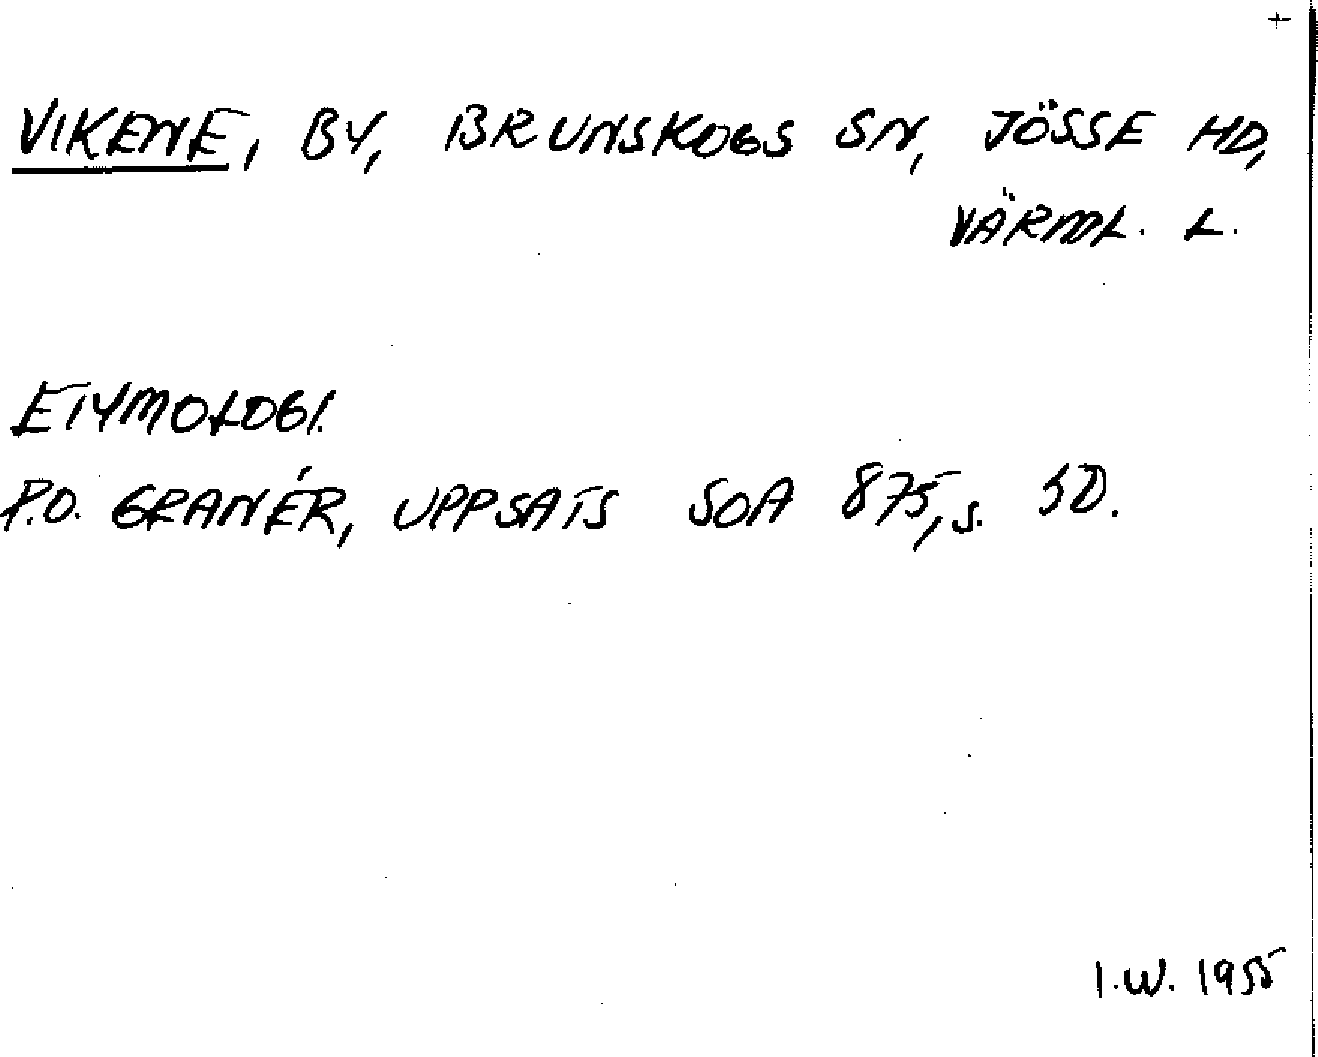 +
VIKENE, BY, BRUNSKOGS SN, JÖSSE HD,
VÄRML. L.
ETYMOLOGI.
P.O. GRANÉR, UPPSATS SOA 875, s.
I.W. 1955